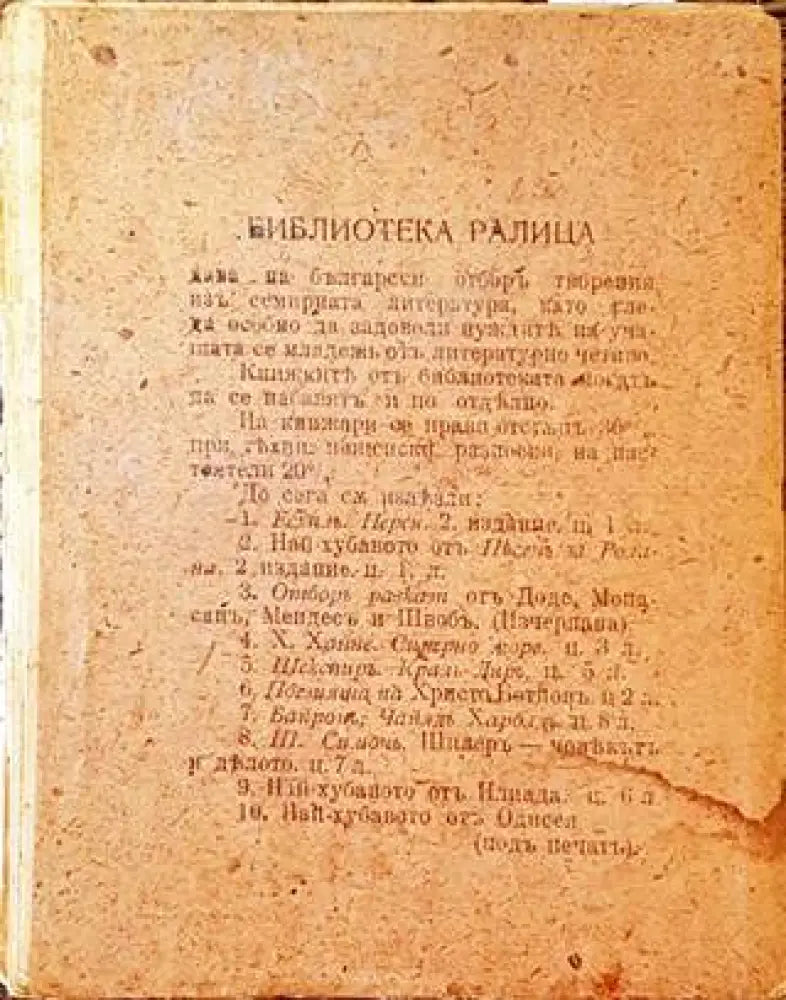 БИБЛИОТЕКА РАЛИЦА
дава на български отборъ творения
изъ семирната литература, като гле-
да особно да задоволи нуждитѣ на уча-
щата се младежь отъ литературно четиво.
Книжкитѣ отъ библиотеката могатъ
да се набавятъ и по отдѣлно.
На книжари се прави отстъпъ 30%
при
тоятели 20%
До сега сѫ излѣзли:
1. Есхилъ. Перси. 2. издание. ц. 1 л.
2. Най-хубавото отъ Пѣсень за Рола-
на. 2 издание. ц. 1 л.
3. Отборъ разкази отъ Доде, Мопа-
санъ, Мендесъ и Швобъ. (Изчерпана)
4. Х. Хайне. Северно море. ц. 3 л.
5. Шекспиръ. Краль Лиръ. ц. 5 л.
6. на Христо Ботйовъ. ц 2 л.
7. Байронъ, Чайлдъ Харолдъ. ц. 8 л.
8. Т. Симонъ. Шилеръ — човѣкътъ
и дѣлото. ц. 7 л.
9. Най-хубавото отъ Илиада. ц. 6 л
10. Най-хубавото отъ Одисея
(подъ печатъ).